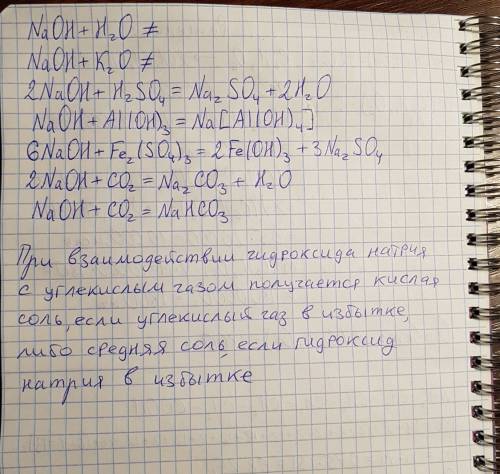 NaOH + H₂O ≠
NaOH + K₂O ≠
2NaOH + H₂SO₄ = Na₂SO₄ + 2H₂O
NaOH + Al(OH)₃ = Na[Al(OH)₄]
6NaOH + Fe₂(SO₄)₃ = 2Fe(OH)₃ + 3Na₂SO₄
2NaOH + CO₂ = Na₂CO₃ + H₂O
NaOH + CO₂ = NaHCO₃
При взаимодействии гидроксида натрия
с углекислым газом получается кислая
соль, если углекислый газ в избытке,
либо средняя соль, если гидроксид
натрия в избытке